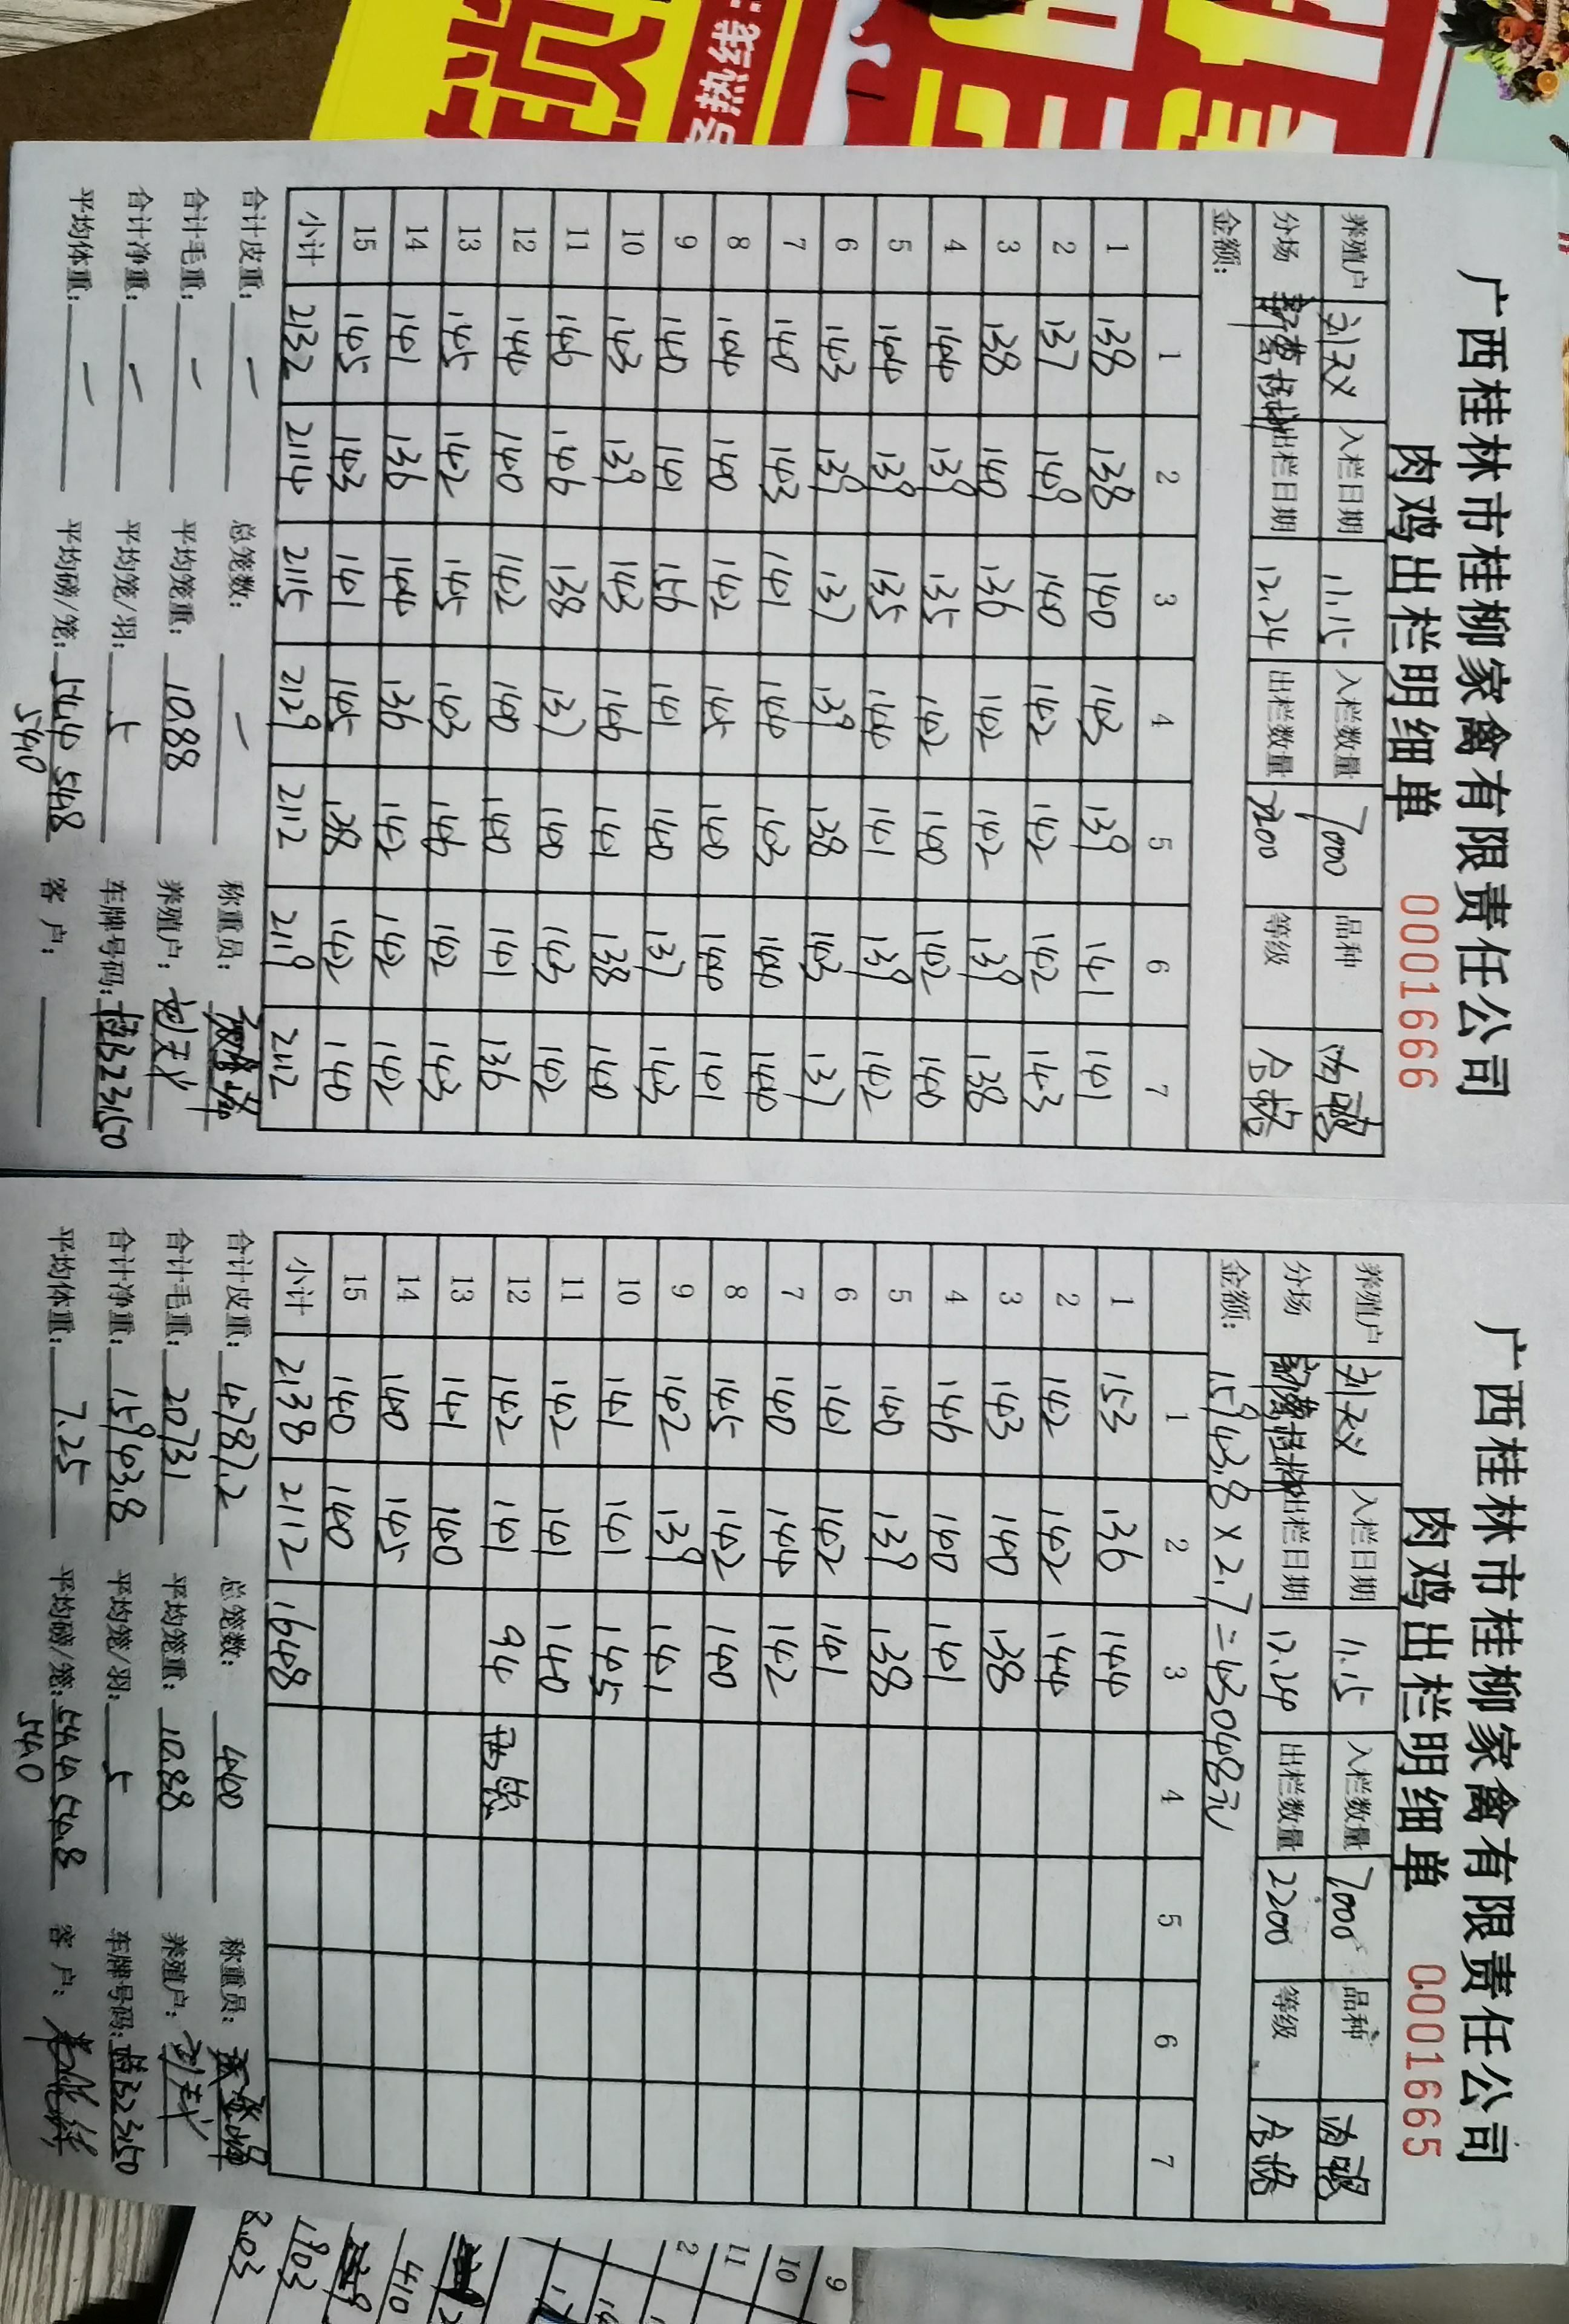 号热线:
广西桂林市桂柳家禽有限责任公司
肉鸡出栏明细单 0001666
养殖户 入栏日期 11.15 入栏数量 7000 品种
分场 出栏日期 12.24 出栏数量 2200 等级 合格
金额:
1 2 3 4 5 6 7
1 138 138 140 143 139 141 141
2 137 149 140 142 142 142 143
3 138 140 136 142 142 139 138
4 144 139 135 142 140 142 140
5 144 139 135 144 141 139 142
6 143 139 137 139 138 143 137
7 140 143 141 144 143 144 144
8 144 140 142 145 140 144 141
9 140 141 156 141 140 137 143
10 143 139 143 146 141 138 140
11 146 146 138 137 140 143 142
12 144 140 142 140 140 141 136
13 145 142 145 143 146 142 143
14 141 136 144 136 142 142 142
15 145 143 141 145 138 142 140
小计 2132 2114 2115 2129 2112 2119 2112
合计皮重: — 总笼数: — 称重员:
合计毛重: — 平均笼重: 10.88 养殖户:
合计净重: — 平均笼/羽: 5 车牌号码: 桂B23150
平均体重: — 平均磅/笼: 54.4 54.8 客户:
54.0
广西桂林市桂柳家禽有限责任公司
肉鸡出栏明细单 0001665
养殖户 入栏日期 11.15 入栏数量 7000 品种
分场 出栏日期 12.24 出栏数量 2200 等级 合格
金额: 15943.8 × 2.7 = 43048元
1 2 3 4 5 6 7
1 153 136 144
2 142 142 144
3 143 140 138
4 146 140 141
5 140 139 138
6 141 142 141
7 140 144 142
8 145 142 140
9 142 139 141
10 141 141 145
11 142 141 140
12 142 141 94
13 141 140
14 140 145
15 140 140
小计 2138 2112 1648
合计皮重: 4787.2 总笼数: 440 称重员:
合计毛重: 20731 平均笼重: 10.88 养殖户:
合计净重: 15943.8 平均笼/羽: 5 车牌号码: 桂B23150
平均体重: 7.25 平均磅/笼: 54.4 54.8 客户:
54.0
9
10
11
2
410
1803
8.03